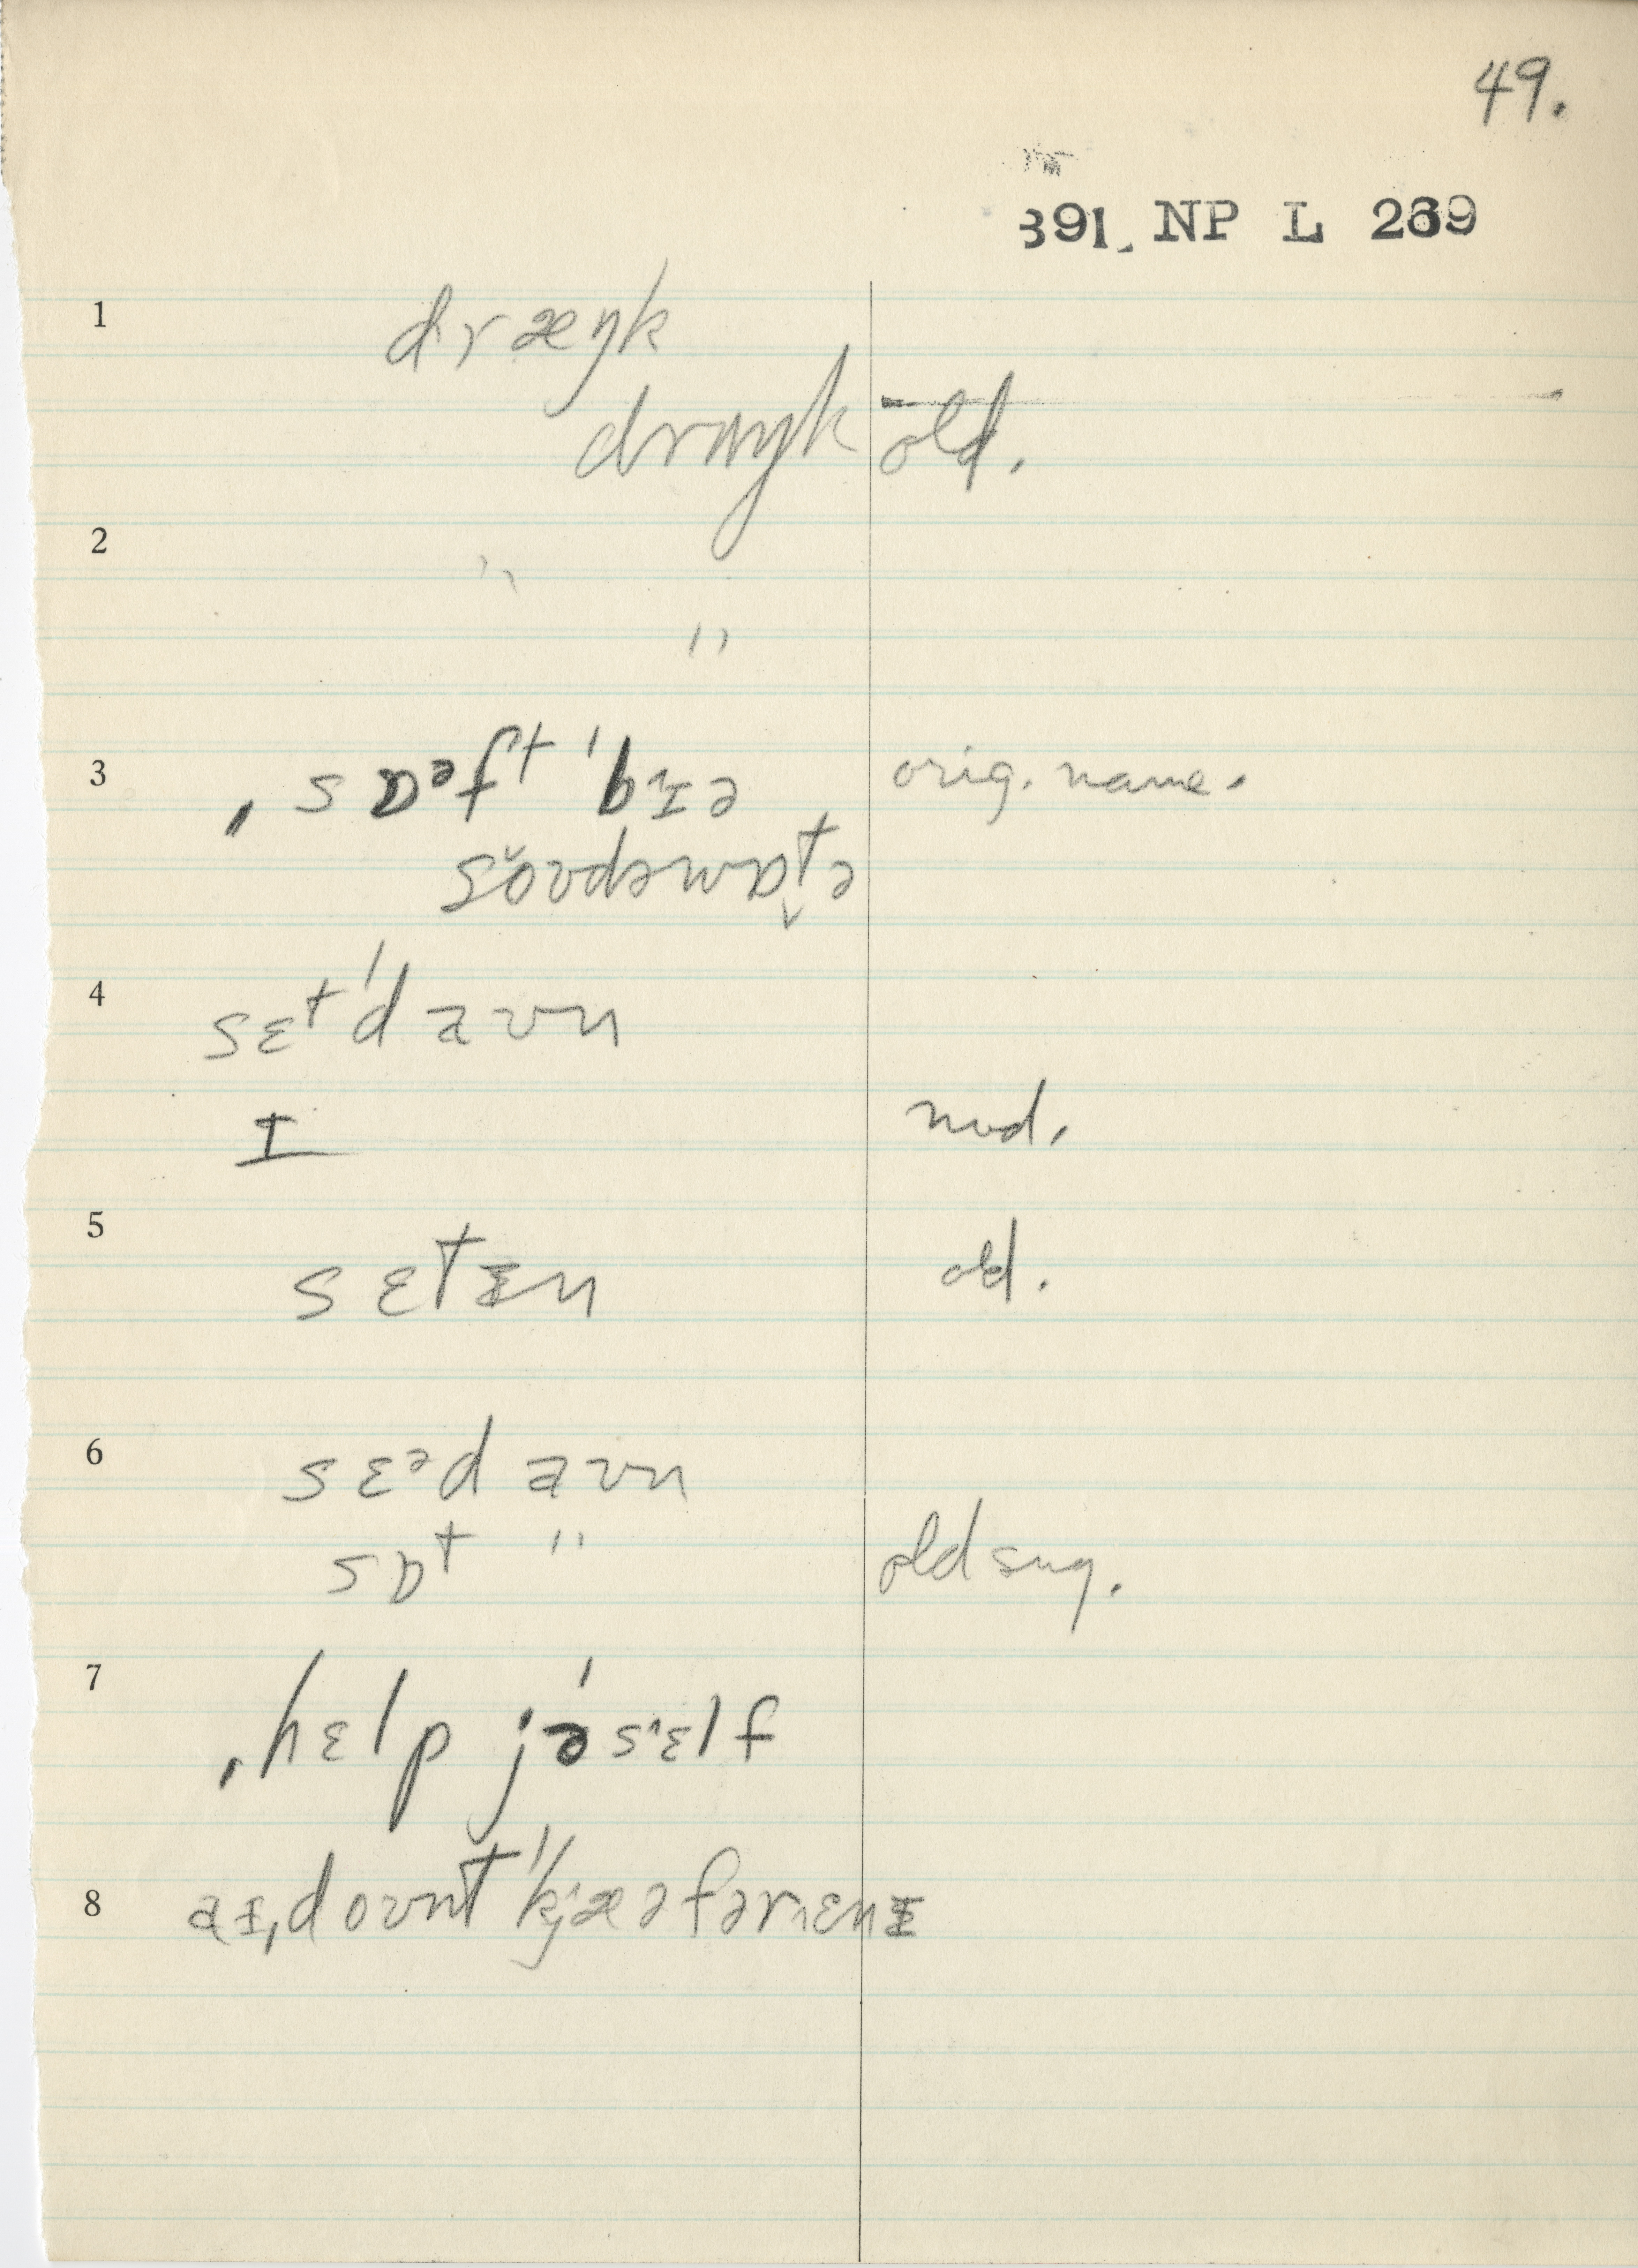 49.
391. NP L 269
1 dræŋk
drʌŋk old.
2 " "
"
3 ˌsɒᵊft ˈbɪə orig. name.
soʊdəwɒt̬ə
4 sɛtˈdaʊn
ɪ mod.
5 sɛtɪn old.
6 sɛᵊdaʊn
sɒt " old sug.
7 ˌhɛlp jəˈsɛlf
8 aɪˌdoʊntˈkjæəfərˌɛnɪ